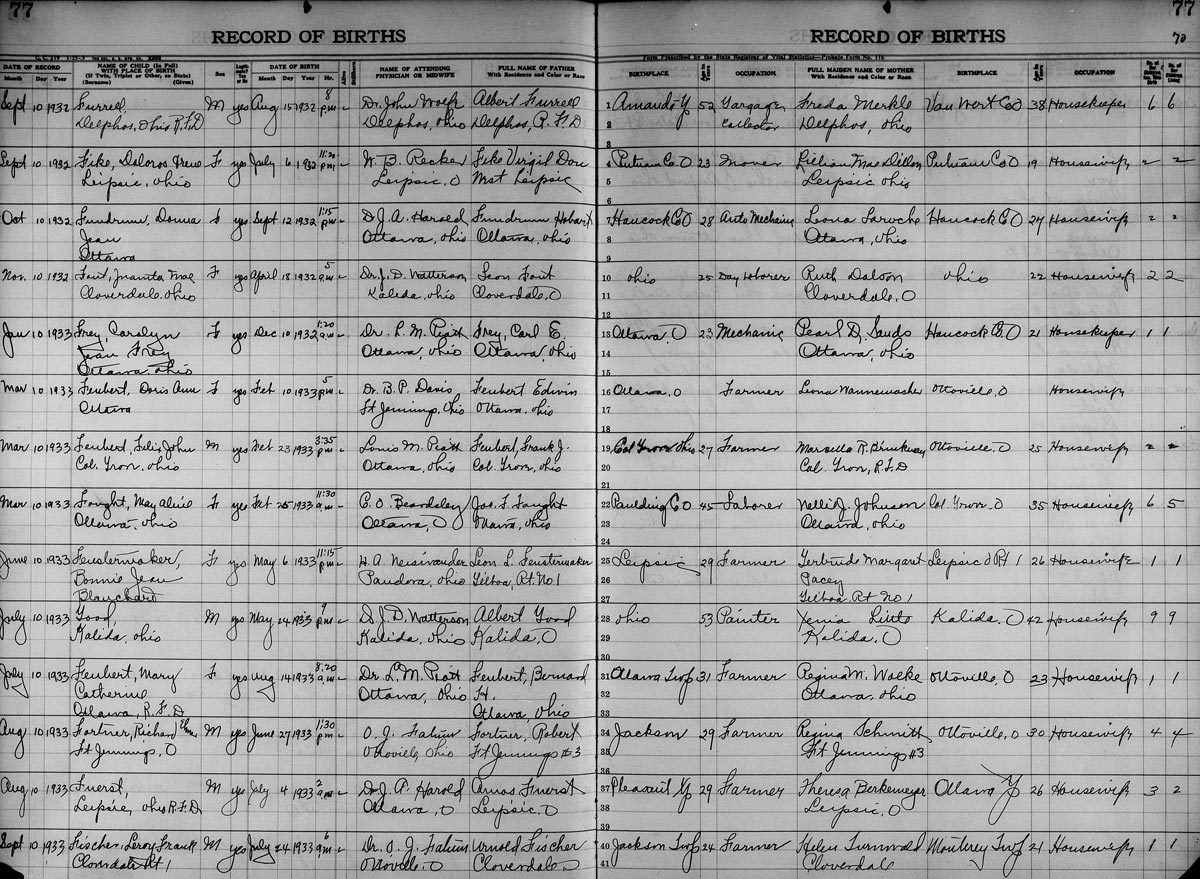 77
RECORD OF BIRTHS
DATE OF RECORD
Month Day Year
NAME OF CHILD (In Full)
WITH PLACE OF BIRTH
(If Twin, Triplet or Other, so State)
(Surname) (Given)
Sex
DATE OF BIRTH
Month Day Year Hr.
Alive
Stillborn
NAME OF ATTENDING
PHYSICIAN OR MIDWIFE
FULL NAME OF FATHER
With Residence and Color or Race
Sept 10 1932 Furrell M yes Aug 15 1932 8 p.m. Dr. John Wolfe Albert Furrell
Delphos, Ohio R.F.D Delphos, Ohio Delphos, R.F.D
Sept 10 1932 Fike, Doloros Irene F yes July 6 1932 11:20 p.m. W. B. Recker Fike Virgil Don
Leipsic, Ohio Leipsic, O West Leipsic
Oct 10 1932 Fundrum, Donna F yes Sept 12 1932 1:15 p.m. Dr. J. A. Harold Fundrum Hobart
Jean Ottawa, Ohio Ottawa, Ohio
Ottawa
Nov. 10 1932 Font, Juanita Mae F yes April 18 1932 5 a.m. Dr. J. D. Watterson Leon Font
Cloverdale, Ohio Kalida, Ohio Cloverdale, O
Jan 10 1933 Frey, Carolyn F yes Dec 10 1932 1:20 a.m. Dr. L. M. Piatt Frey, Carl E.
Jean Frey Ottawa, Ohio Ottawa, Ohio
Ottawa, Ohio
Mar 10 1933 Feubert, Doris Ann F yes Feb 10 1933 5 p.m. Dr. B. P. Davis Feubert Edwin
Ottawa Ft Jennings, Ohio Ottawa, Ohio
Mar 10 1933 Feubert, John M yes Feb 23 1933 3:35 p.m. Louis M. Piatt Feubert, Frank J.
Col. Grove, Ohio Ottawa, Ohio Col. Grove, Ohio
Mar 10 1933 Fought, May Alice F yes Feb 25 1933 11:30 a.m. C. O. Beardsley Jas. F. Fought
Ottawa, Ohio Ottawa, O Ottawa, Ohio
June 10 1933 Fenstermaker, F yes May 6 1933 11:15 p.m. H. A. Neiswander Leon L. Fenstermaker
Bonnie Jean Pandora, Ohio Gilboa, Rt. No 1
Blanchard
July 10 1933 Good, M yes May 24 1933 9 p.m. Dr. J. D. Watterson Albert Good
Kalida, Ohio Kalida, Ohio Kalida, O
July 10 1933 Feubert, Mary F yes Aug 14 1933 8:20 a.m. Dr. L. M. Piatt Feubert, Bernard
Catherine Ottawa, Ohio H.
Ottawa, R.F.D Ottawa, Ohio
Aug 10 1933 Fortner, Richard M yes June 27 1933 11:30 p.m. O. J. Fatum Fortner, Robert
Ft Jennings, O Ottoville, Ohio Ft Jennings #3
Aug 10 1933 Fuerst, M yes July 4 1933 2 a.m. Dr. J. A. Harold Amos Fuerst
Leipsic, Ohio R.F.D. Ottawa, O Leipsic, O
Sept 10 1933 Fischer, Leroy Frank M yes July 24 1933 6 a.m. Dr. O. J. Fatum Arnold Fischer
Cloverdale Rt 1 Ottoville, O Cloverdale, O
77
70
RECORD OF BIRTHS
Form Prescribed by the State Registrar of Vital Statistics—Probate Form No. 116
BIRTHPLACE
OCCUPATION
FULL MAIDEN NAME OF MOTHER
With Residence and Color or Race
BIRTHPLACE
OCCUPATION
1 Amanda Tp 52 Garbage Freda Merkle Van Wert Co O 38 Housekeeper 6 6
2 Collector Delphos, Ohio
3
4 Putnam Co. O 23 Mover Lillian Mae Dillon Putnam Co O 19 Housewife 2 2
5 Leipsic Ohio
6
7 Hancock Co O 28 Auto Mechanic Leona Laroche Hancock Co O 27 Housewife 2 2
8 Ottawa, Ohio
9
10 Ohio 25 Day Laborer Ruth Ohio 22 Housewife 2 2
11 Cloverdale, O
12
13 Ottawa. O 23 Mechanic Pearl D. Hancock Co. O 21 Housekeeper 1 1
14 Ottawa, Ohio
15
16 Ottawa. O Farmer Leona Wannemacher Ottoville, O Housewife
17
18
19 Col Grove Ohio 27 Farmer Marcella R. Brinkman Ottoville, O 25 Housewife 2 2
20 Col. Grove, R.F.D
21
22 Paulding Co O 45 Laborer Nellie J. Johnson Col. Grove. O 35 Housewife 6 5
23 Ottawa, Ohio
24
25 Leipsic 29 Farmer Gertrude Margaret Leipsic O Rt 1 26 Housewife 1 1
26 Pacey
27 Gilboa Rt No 1
28 Ohio 53 Painter Kalida, O 42 Housewife 9 9
29 Kalida, O
30
31 Ottawa Twp 31 Farmer Regina M. Ottoville, O 23 Housewife 1 1
32 Ottawa, Ohio
33
34 Jackson 29 Farmer Regina Schmitt Ottoville, O 30 Housewife 4 4
35 Ft Jennings #3
36
37 Pleasant Tp 29 Farmer Theresa Berkemeyer Ottawa Tp 26 Housewife 3 2
38 Leipsic, O
39
40 Jackson Twp 24 Farmer Helen Monterey Twp 21 Housewife 1 1
41 Cloverdale